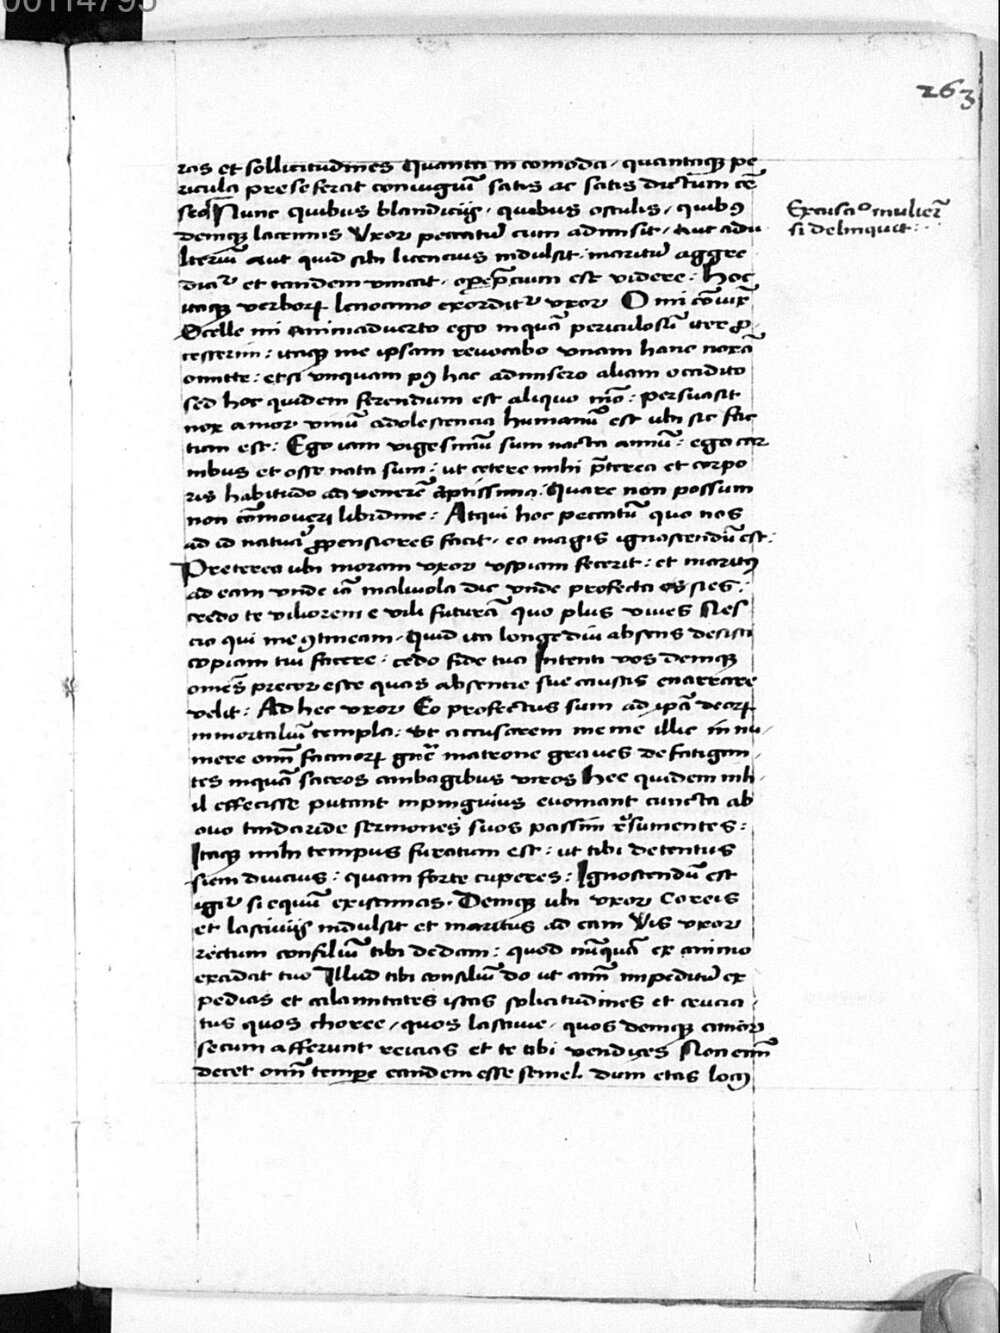 00114795
263
ras et sollicitudines Quanta incomoda, quantaqȝ pe
ricula prese ferat coniugiū satis ac satis dictum eē
sed Nunc quibus blandicijs, quibus osculis, quibꝰ
Excusacio mulierū
si delinquit:
demqȝ lacrimis Vxor peccatū cum admisit, Aut adu
lteriū Aut quid sibi licencius indulsit: maritum aggre
diat᷑ et tandem vincat, operępcium est videre: Hoc
itaqȝ verborꝝ lenocinio exordit᷑ vxor O mi cōiux
Ocelle mi animaduerto ego inquā periculosū iter ꝓ
cesserim: itaqȝ me ipsam reuocabo vnam hanc noxā
omitte: etsi vnquam pꝰ hac admisero aliam occidito
sed hoc quidem ferendum est aliquo mō: persuasit
nox amor vinū adolescencia humanū est vbi sic fac
tum est: Ego iam vigesimū sum nacta annū: ego car
nibus et osse nata sum: ut cetere mihi p̄terea et corpo
ris habitudo ad venerē aptissima: Quare non possum
non cōmoueri libidine: Atqui hoc peccatū quo nos
ad id natura ꝓpensiores facit, eo magis ignoscendū est:
Preterea ubi moram vxor vspiam fecerit: et maritꝰ
ad eam vnde iā maliuola dic vnde profecta es sies:
credo te viliorem e vili futurā quo plus viues Nes
cio qui me ꝯtineam, Quid ita longe diu absens desisti
copiam tui facere: cedo fide tua Intenti vos demqȝ
omēs precor este quas absentie sue causas enarrare
velit: Ad hec vxor Eo profectus sum ad ip̄a deorꝝ
inmortaliū templa: Vt accusarem me me illic in nu,
mere om̄ facinorꝝ gn̄e matrone graues defatigan
tes inquā sacros ambagibus viros Hee quidem nih,
il effecisse putant inpinguius euomant cuncta ab
ouo tindaride sermones suos passim r̄sumentes:
Itaqȝ mihi tempus furatum est: ut tibi detentus
siem diucius: quam forte cuperes: Ignoscendū est
igit᷑ si equū existimas. Demqȝ ubi vxor Coreis
et lasciuijs indulsit et maritus ad eam Vis vxor
rectum consiliū tibi dedam: quod nūquā ex animo
excidat tuo Illud tibi consiliū do ut aīm impeditū ex
pedias et calamitates istas solicitudines et crucia,
tus quos choree, quos lasciuie, quos demqȝ amor
secum afferunt reicias et te tibi vendices Non enī
decet omī tempore eandem esse semel. dum etas locꝰ